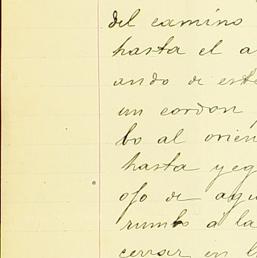 del camino
hasta el a
ando de este
un cordon
bo al orien
hasta y eg
ojo de agu
rumbo a la
cerrar en l